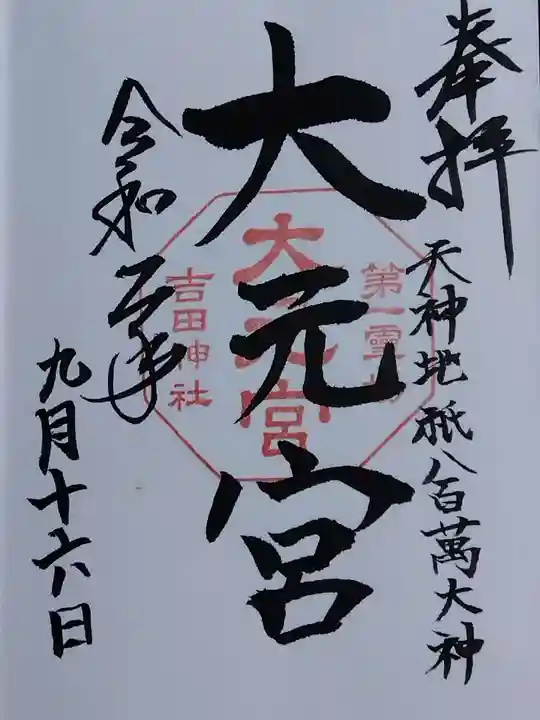 奉拝
天神地祇八百萬大神
大元宮
第一霊場
大元宮
吉田神社
令和二年
九月十六日